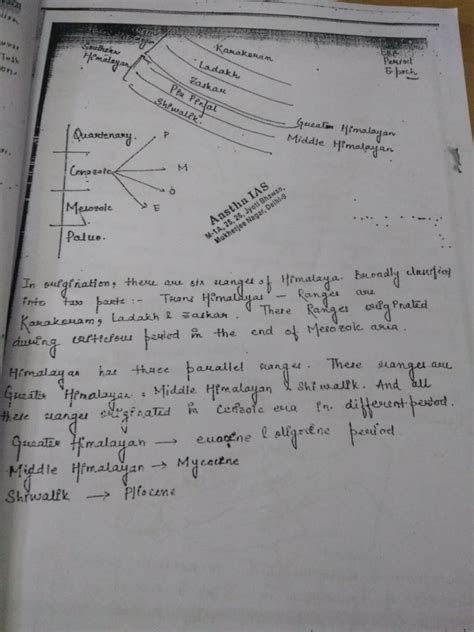 Southern
Himalayan
Karakoram
Ladakh
Zaskar
Pir Pinjal
Shiwalik
Period
Epoch
Greater Himalayan
Middle Himalayan
Quarternary
Cenozoic
Mesozoic
Paleo.
P
M
O
E
Aastha IAS
M-1A, 25, 26, Jyoti Bhawan,
Mukherjee Nagar, Delhi-9
In origination, there are six ranges of Himalaya. Broadly classified
into two parts :- Trans Himalayas - Ranges are
Karakoram, Ladakh & Zaskar. These Ranges originated
during criticious period in the end of Mesozoic aria.
Himalayas has three parallel ranges. These ranges are
Greater Himalayan, Middle Himalayan & Shiwalik. And all
these ranges originated in Cenozoic era in different period.
Greater Himalayan → euocine & oligocine period
Middle Himalayan → Mycocine
Shiwalik → Pliocene